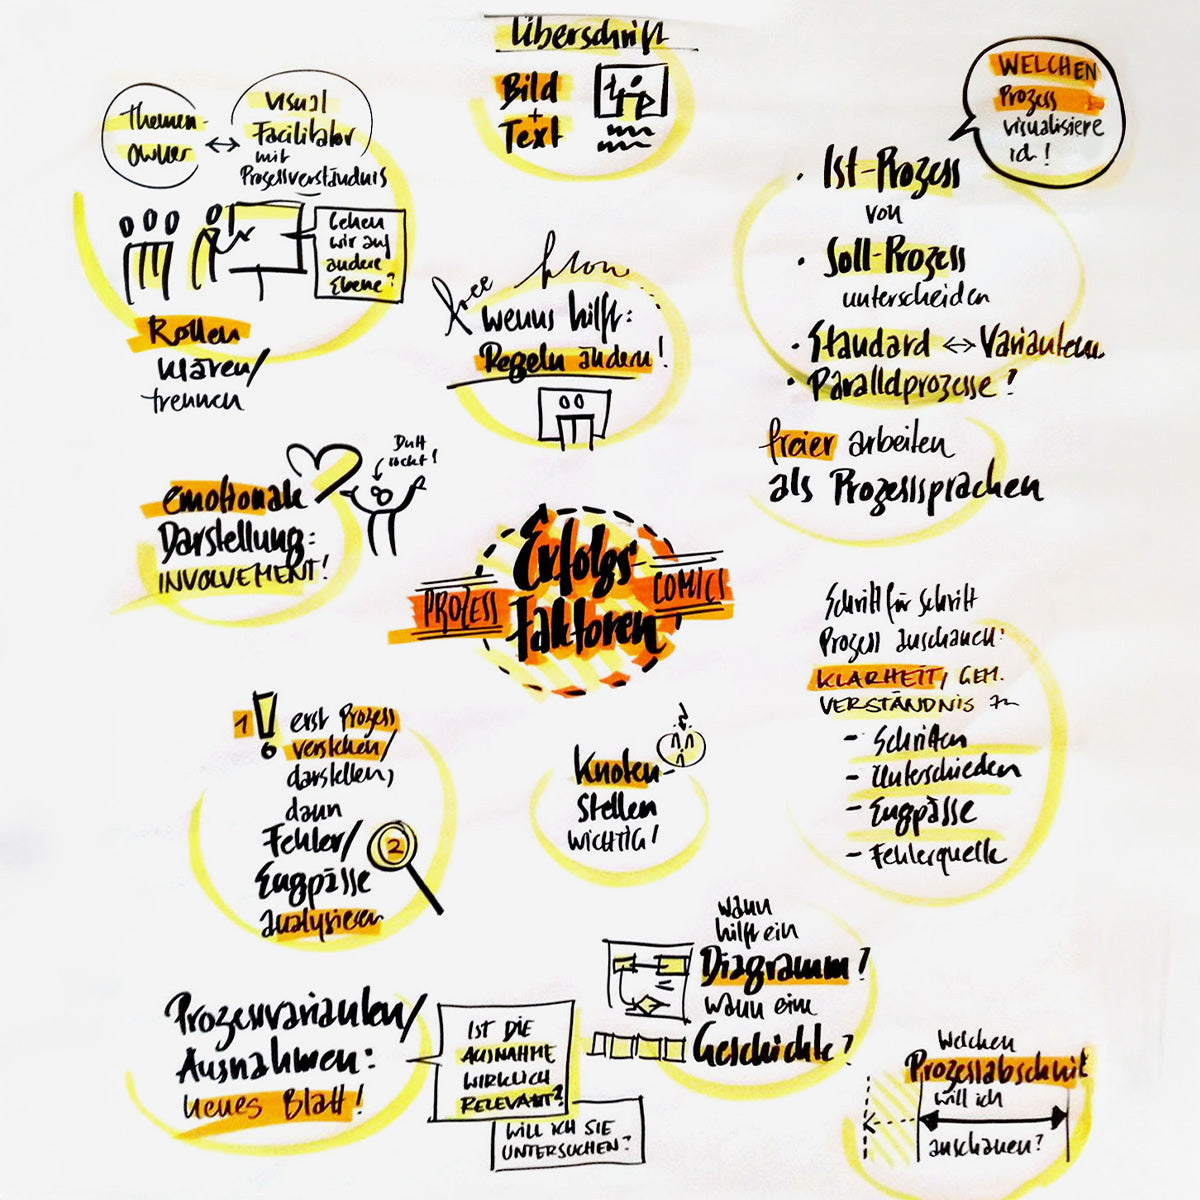 Überschrift
Bild
+
Text
Themen-
owner
visual
Facilitator
mit
Prozessverständnis
Gehen
wir auf
andere
Ebene?
Rollen
klären/
trennen
free flow
wenns hilft:
Regeln ändern!
WELCHEN
Prozess
visualisiere
ich!
• Ist-Prozess
von
• Soll-Prozess
unterscheiden
• Standard ↔ Varianten
• Parallelprozesse?
freier arbeiten
als Prozesssprachen
emotionale
Darstellung:
INVOLVEMENT!
Duft
lockt!
Erfolgs-
Faktoren
PROZESS
COMICS
Schritt für Schritt
Prozess anschauen:
KLARHEIT, GEM.
VERSTÄNDNIS zu
- Schritten
- Unterschieden
- Engpässe
- Fehlerquelle
1 ! erst Prozess
verstehen/
darstellen,
dann
Fehler/
Engpässe
analysieren
2
Knoten-
stellen
WICHTIG!
wann
hilft ein
Diagramm?
wann eine
Geschichte?
Prozessvarianten/
Ausnahmen:
neues Blatt!
IST DIE
AUSNAHME
WIRKLICH
RELEVANT?
WILL ICH SIE
UNTERSUCHEN?
Welchen
Prozessabschnitt
will ich
anschauen?